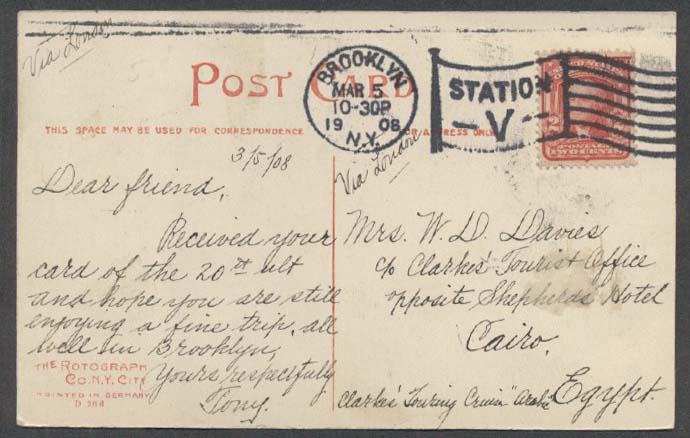 Via London
POST CARD
BROOKLYN
MAR 5
10-30P
1908
N.Y.
STATION
V
POSTAGE
TWO CENTS
THIS SPACE MAY BE USED FOR CORRESPONDENCE
FOR ADDRESS ONLY
3/5/08
Via London
Dear friend,
Received your
card of the 20th ult
and hope you are still
enjoying a fine trip, all
well in Brooklyn,
Yours respectfully
Tony.
Mrs. W. D. Davies
c/o Clarkes Tourist Office
opposite Shepherds Hotel
Cairo,
Egypt.
Clarkes' Touring "Arabic"
THE ROTOGRAPH
CO. N.Y. CITY
PRINTED IN GERMANY